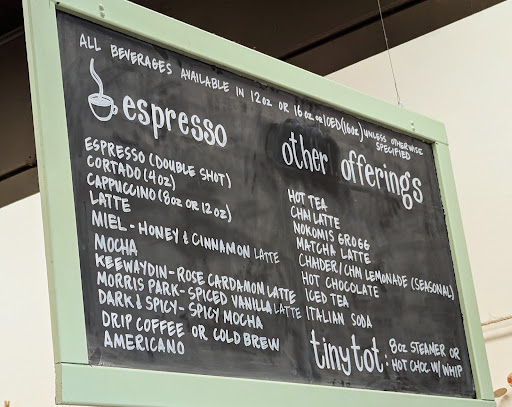 ALL BEVERAGES AVAILABLE IN 12oz OR 16oz OR ICED (16oz) UNLESS OTHERWISE
SPECIFIED
espresso
ESPRESSO (DOUBLE SHOT)
CORTADO (4oz)
CAPPUCCINO (8oz OR 12oz)
LATTE
MIEL - HONEY & CINNAMON LATTE
MOCHA
KEEWAYDIN - ROSE CARDAMON LATTE
MORRIS PARK - SPICED VANILLA LATTE
DARK & SPICY - SPICY MOCHA
DRIP COFFEE OR COLD BREW
AMERICANO
other offerings
HOT TEA
CHAI LATTE
NOKOMIS GROGG
MATCHA LATTE
CHAIDER/CHAI LEMONADE (SEASONAL)
HOT CHOCOLATE
ICED TEA
ITALIAN SODA
tiny tot: 8oz STEAMER OR
HOT CHOC W/ WHIP